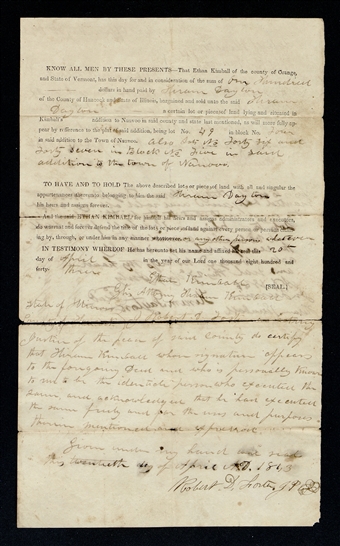 KNOW ALL MEN BY THESE PRESENTS—That Ethan Kimball of the county of Orange,
and State of Vermont, has this day for and in consideration of the sum of One Hundred
dollars in hand paid by Hiram
of the County of Hancock and State of Illinois, bargained and sold unto the said Hiram
a certain lot or piece of land lying and situated in
Kimball's addition to Nauvoo in said county and state last mentioned, as will more fully ap-
pear by reference to the plot of said addition, being lot No. 49 in block No. four
in said addition to the Town of Nauvoo. Also lots No. Forty six and
Forty Seven in Block No. Five in said
addition to the town of Nauvoo
TO HAVE AND TO HOLD The above described lots or piece of land with all and singular the
appurtenances thereunto belonging to him the said Hiram
his heirs and assigns forever.
And the said
do warrant and forever defend the title of the lots or piece of land against every person or persons
ing by, through, or under him in any manner whatsoever, or any other person whatever
IN TESTIMONY WHEREOF He has hereunto set his name and affixed seal the 20th
day of April in the year of our Lord one thousand eight hundred and
forty-three
Ethan Kimball
[SEAL]
By his Attorney
State of Illinois
Justice of the peace of said County do certify
that Hiram Kimball whose signature appears
to the foregoing Deed and who is personally known
to me to be the identical person who executed the
same, and acknowledged that he had executed
the same freely and for the uses and purposes
therein mentioned and expressed.
Given under my hand and seal
this twentieth day of April A.D. 1843
Robert D. Foster, J.P.